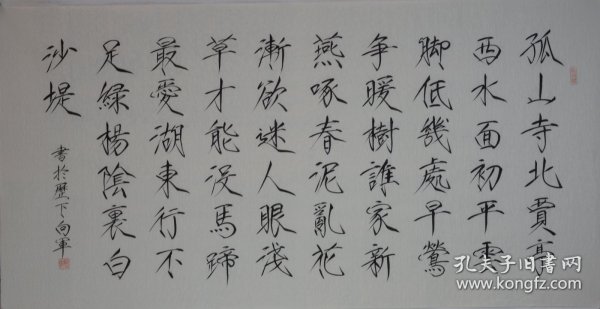 孤山寺北賈亭
西水面初平雲
脚低幾處早鶯
争暖樹誰家新
燕啄春泥亂花
漸欲迷人眼淺
草才能没馬蹄
最愛湖東行不
足綠楊陰裏白
沙堤
書於歷下向軍
孔夫子旧书网
www.kongfz.com